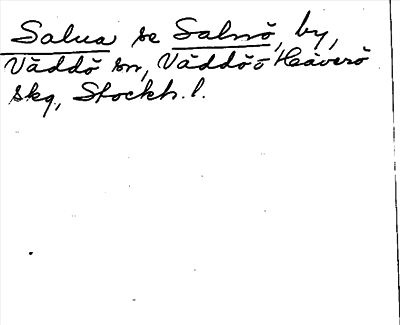 Salua se Salnö, by,
Väddö sn, Väddö o Häverö
skg, Stockh. l.